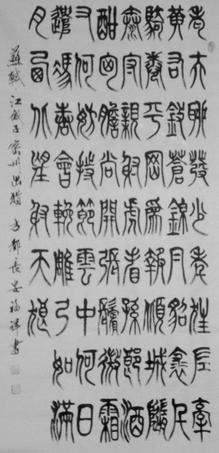 老夫聊發少年狂左牽
黃右擎蒼錦帽貂裘千
騎卷平岡為報傾城隨
太守親射虎看孫郎酒
酣胸膽尚開張鬢微霜
又何妨持節雲中何日
遣馮唐會挽雕弓如滿
月西北望射天狼
蘇軾江城子密州出獵 書